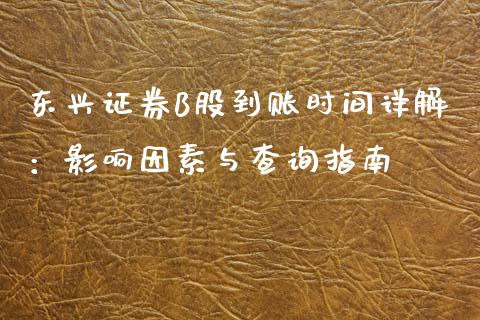 东兴证券B股到账时间详解
：影响因素与查询指南